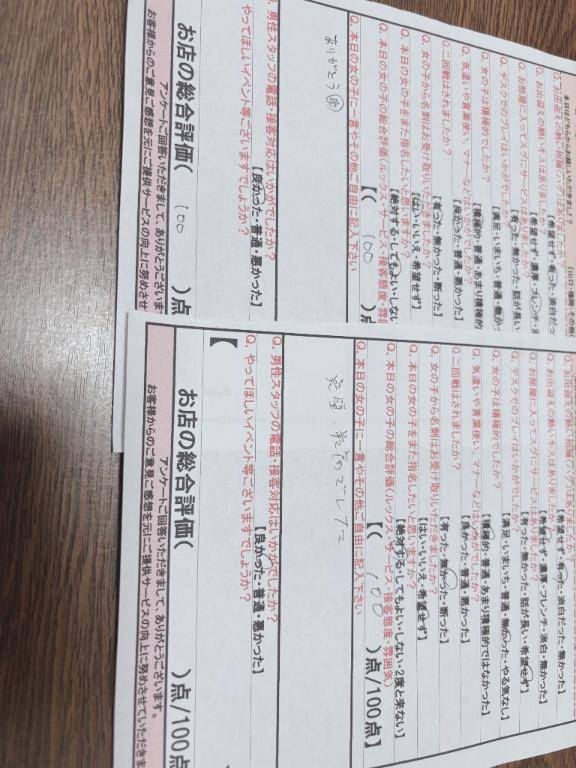 本日はどちらからお越しいただきまし
【山口・福岡・その他
Q. お出迎えの熱いキスはありまし
【希望せず・濃厚・フレンチ・
Q. お部屋に入ってスグにサービスはありましたか?
【有った・無かった・話が長い
Q. デスクでのプレイはいかがでした
【満足・いまいち・普通・無か
Q. 女の子は積極的でしたか?
【積極的・普通・あまり積極的
Q. 気遣いや言葉使い、マナーなどはいかがでしたか?
【良かった・普通・悪かった】
Q. 二回戦はされましたか?
【有った・無かった・断った】
Q. 女の子から名刺はお受け取りいただきましたか?
【はい・いいえ・希望せず】
Q. 本日の女の子をまた指名したいと思いますか?
【絶対する・してもよい・しない
Q. 本日の女の子の総合評価(ルックス・サービス・接客態度・雰囲
【( 100 )点
Q. 本日の女の子に一言やその他ご自由に記入下さい
ありがとう
Q. 男性スタッフの電話・接客対応はいかがでしたか?
【良かった・普通・悪かった】
やってほしいイベント等ございますでしょうか?
お店の総合評価( 100 )点
アンケートご回答いただきまして、ありがとうございま
お客様からのご意見ご感想を元にご提供サービスの向上に努めさせ
【希望せず・有った・淡白だった・無かった】
Q. お出迎えの熱いキスはありまし
【希望せず・濃厚・フレンチ・淡白・無かった】
Q. お部屋に入ってスグにサービスはありましたか?
【有った・無かった・話が長い・希望せず】
Q. デスクでのプレイはいかがでした
【満足・いまいち・普通・無かった・やる気なし】
Q. 女の子は積極的でしたか?
【積極的・普通・あまり積極的ではなかった】
Q. 気遣いや言葉使い、マナーなどはいかがでしたか?
【良かった・普通・悪かった】
Q. 二回戦はされましたか?
【有った・無かった・断った】
Q. 女の子から名刺はお受け取りいただきましたか?
【はい・いいえ・希望せず】
Q. 本日の女の子をまた指名したいと思いますか?
【絶対する・してもよい・しない・2度と来ない】
Q. 本日の女の子の総合評価(ルックス・サービス・接客態度・雰囲気)
【( 100 )点/100点】
Q. 本日の女の子に一言やその他ご自由に記入下さい
でした
Q. 男性スタッフの電話・接客対応はいかがでしたか?
【良かった・普通・悪かった】
Q. やってほしいイベント等ございますでしょうか?
【
お店の総合評価( )点/100点
アンケートご回答いただきまして、ありがとうございます。
お客様からのご意見ご感想を元にご提供サービスの向上に努めさせていただきま